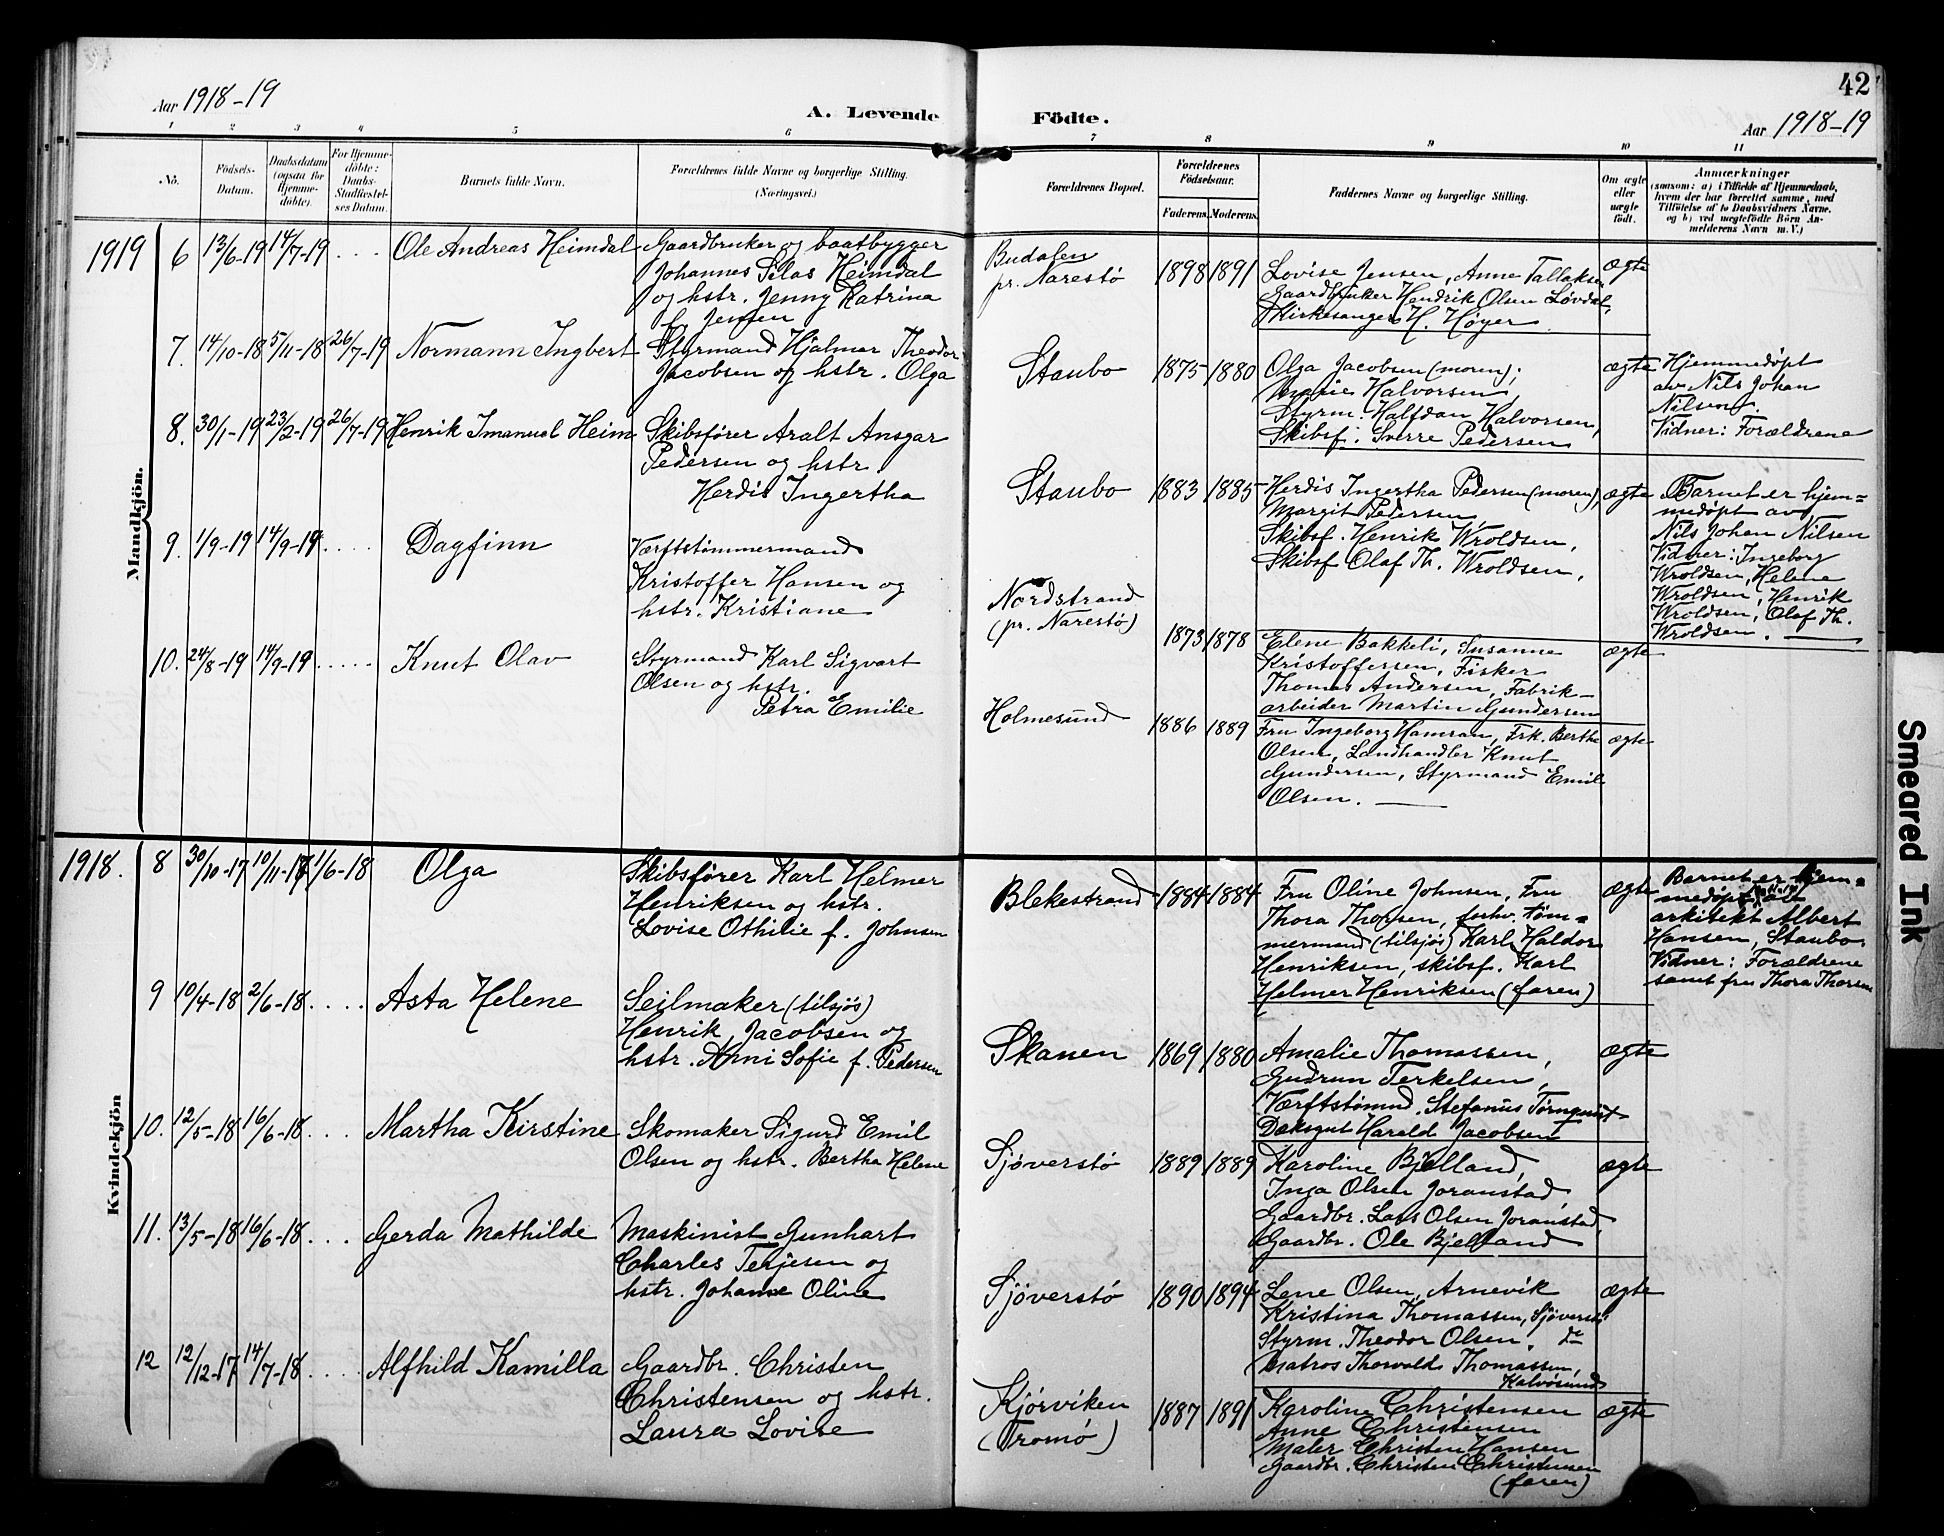 42
Aar 1918-19
A. Levende Födte.
Aar 1918-19
1 2 3 4 5 6 7 8 9 10 11
No.
Födsels-
Datum.
Daabsdatum
(ogsaa for
Hjemme-
döbte).
For Hjemme-
döbte:
Daabs-
Stadfæstel-
ses Datum.
Barnets fulde Navn.
Forældrenes fulde Navne og borgerlige Stilling.
(Næringsvei.)
Forældrenes Bopæl.
Forældrenes
Födselsaar.
Faderens. Moderens.
Faddernes Navne og borgerlige Stilling.
Om ægte
eller
uægte
födt.
Anmærkninger
(saasom: a) i Tilfælde af Hjemmedaab,
hvem der har forrettet samme, med
Tilföielse af to Daabsvidners Navne,
og b) ved uægtefödte Börn An-
melderens Navn m. V.)
Mandkjön.
1919 6 13/6-19 14/7-19 . . . Ole Andreas Heimdal
Gaardbruker og baatbygger
Johannes Silas Heimdal
og hstr. Jenny Katrina
f. Jensen
Budalen
pr. Narestø
1898 1891
Lovise Jensen, Anne Tallaksen
Gaardbruker Hendrik Olsen Løvdal,
Kirkesanger H. Høyer
ægte
7. 14/10-18 5/11-18 26/7-19 Normann Ingbert
Styrmand Hjalmar Theodor
Jacobsen og hstr. Olga
Staubo
1875 1880
Olga Jacobsen (moren);
Marie Halvorsen,
Styrm. Halfdan Halvorsen,
Skibsf. Sverre Pedersen
ægte
Hjemmedøpt
av Nils Johan
Nilsen.
Vidner: Forældrene
8. 30/1-19 23/2-19 26/7-19 Henrik Imanuel Heim
Skibsfører Aralt Ansgar
Pedersen og hstr.
Herdis Ingertha
Staubo
1883 1885
Herdis Ingertha Pedersen (moren),
Margit Pedersen
Skibsf. Henrik Wroldsen,
Skibsf Olaf Th. Wroldsen.
ægte
Barnet er hjem=
medøpt av
Nils Johan Nilsen
Vidner: Ingeborg
Wroldsen, Helene
Wroldsen, Henrik
Wroldsen, Olaf Th.
Wroldsen.
9. 1/9-19 14/9-19 . . . . Dagfinn
Værftstømmermand
Kristoffer Hansen og
hstr. Kristiane
Nordstrand
(pr. Narestø)
1873 1878
Elene Bakkeli, Susanne
Kristoffersen, Fisker
Thomas Andersen, Fabrik-
arbeider Martin Gundersen
ægte
10. 24/8-19 14/9-19 . . . . . Knut Olav
Styrmand Karl Sigvart
Olsen og hstr.
Petra Emilie
Holmesund
1886 1889
Fru Ingeborg Hamran, Frk. Berthe
Olsen, Landhandler Knut
Gundersen, Styrmand Emil
Olsen.
ægte
Kvindekjön
1918. 8 30/10-17 10/11-17 1/6-18 Olga
Skibsfører Karl Helmer
Henriksen og hstr.
Lovise Othilie f. Johnsen
Blekestrand
1884 1884
Fru Oline Johnsen, Fru
Thora Thorsen, forhv. tøm=
mermand (tilsjøs) Karl Haldor
Henriksen, skibsf. Karl
Helmer Henriksen (faren)
ægte
Barnet er hjem=
medøpt av
arkitekt Albert
Hansen, Staubo
Vidner: Forældrene
samt fru Thora Thorsen
9 10/4-18 2/6-18 . . . . Asta Helene
Seilmaker (tilsjøs)
Henrik Jacobsen og
hstr. Anni Sofie f. Pedersen
Skanen
1869 1880
Amalie Thomassen,
Gudrun Terkelsen,
Værftstømmd. Stefanus Tørnquist
Dæksgut Harald Jacobsen
ægte
10. 12/5-18 16/6-18 . . . Martha Kirstine
Skomaker Sigurd Emil
Olsen og hstr. Bertha Helene
Sjøverstø
1889 1889
Karoline Bjelland,
Inga Olsen Joranstad
Gaardbr. Lars Olsen Joranstad,
Gaardbr. Ole Bjelland
ægte
11. 13/5-18 16/6-18 . . . Gerda Mathilde
Maskinist Gunhart
Charles Terjesen og
hstr. Johanne Oline
Sjøverstø
1890 1894
Lene Olsen, Arnevik
Kristina Thomassen, Sjøverstø
Styrm. Theodor Olsen, do
Matros Thorvald Thomassen,
Kalvøsund
ægte
12 12/12-17 14/7-18 . . . . Alfhild Kamilla
Gaardbr. Christen
Christensen og hstr.
Laura Lovise
Kjørviken
(Tromø)
1887 1891
Karoline Christensen
Anne Christensen
Maler Christen Hansen
Gaardbr. Christen Christensen
(faren)
ægte
Smeared Ink